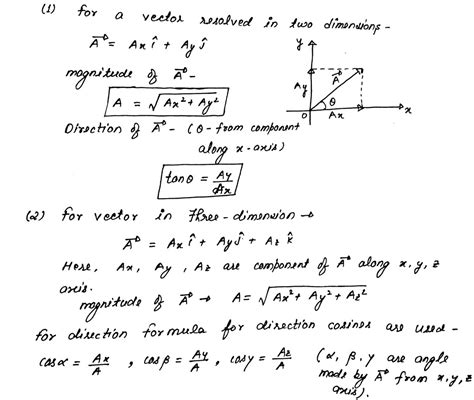 (1) for a vector resolved in two dimensions -
A⃗ = Ax î + Ay ĵ
magnitude of A⃗ -
A = √(Ax² + Ay²)
Direction of A⃗ - (θ - from component
along x-axis)
tanθ = Ay/Ax
y
Ay
A⃗
θ
O
Ax
x
(2) for vector in Three-dimension →
A⃗ = Ax î + Ay ĵ + Az k̂
Here, Ax, Ay, Az are component of A⃗ along x, y, z
axis.
magnitude of A⃗ → A = √(Ax² + Ay² + Az²)
for direction formula for direction cosines are used -
cosα = Ax/A , cosβ = Ay/A , cosγ = Az/A (α, β, γ are angle
made by A⃗ from x, y, z
axis).